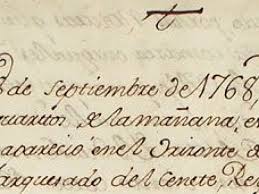 de septiembre de 1768,
de la mañana, e
aparecio en el Orizonte d
arquesado del Cenete, Re